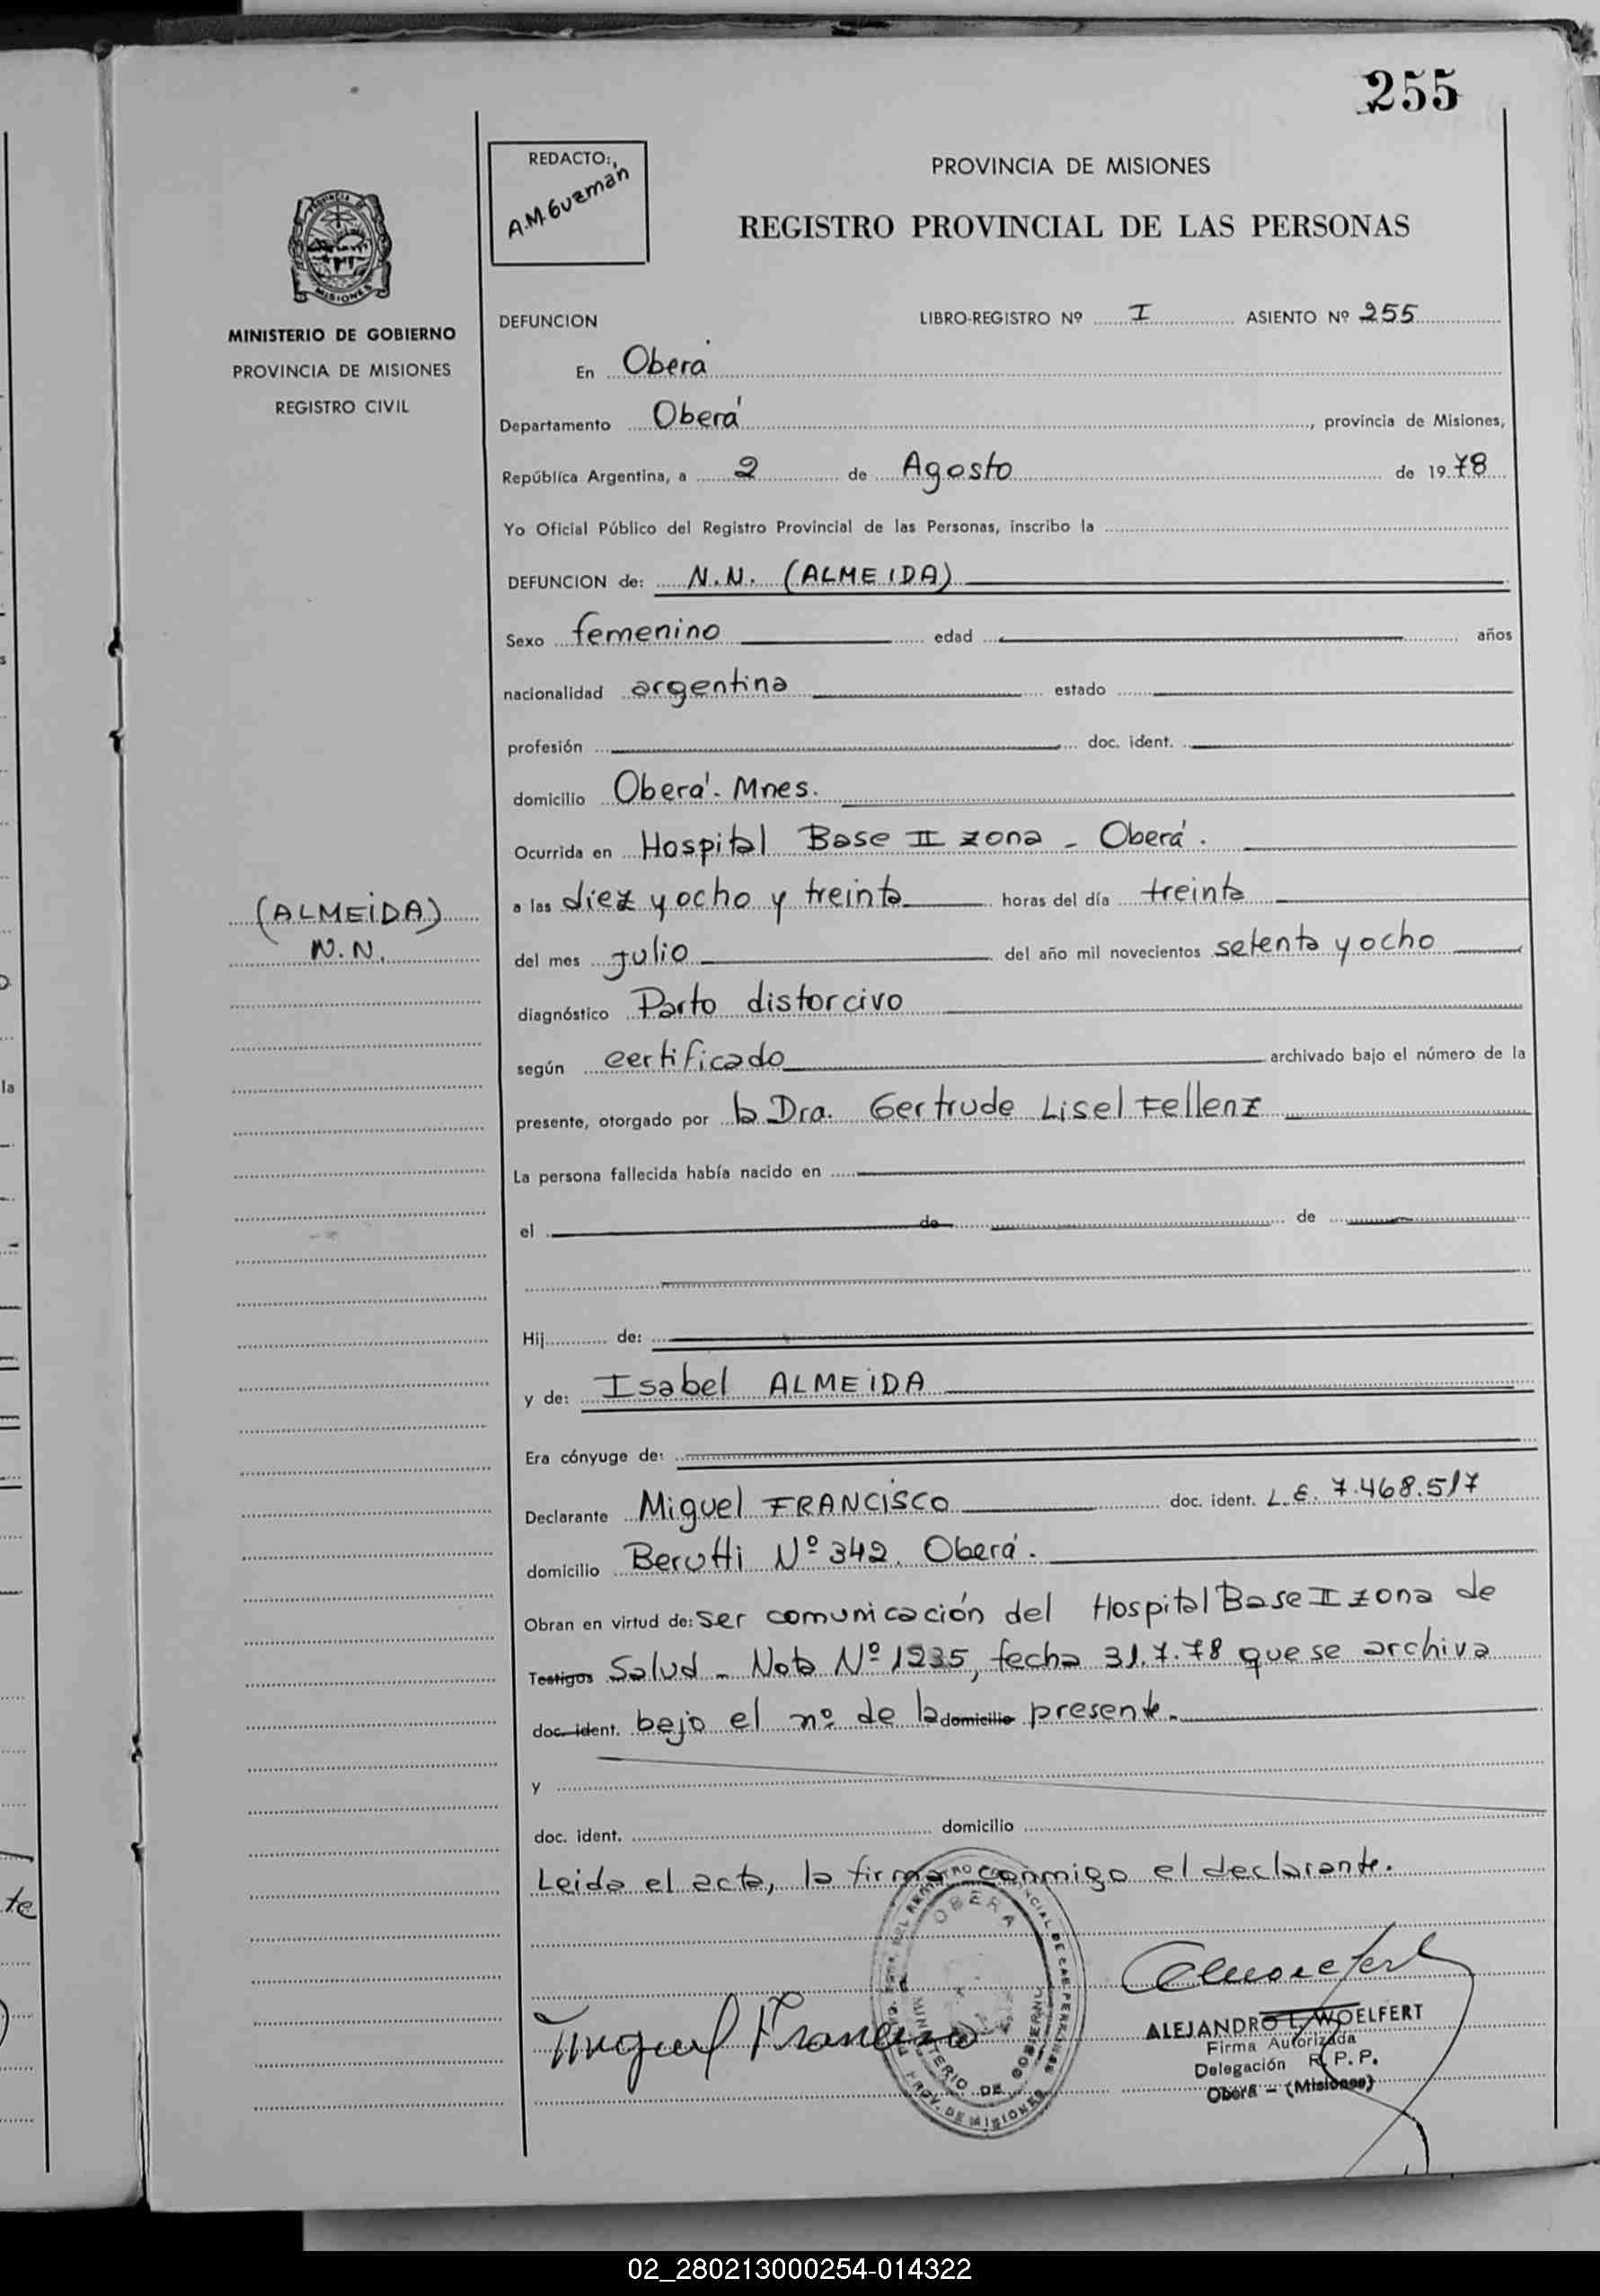 255
REDACTO:
A.M. Guzman
PROVINCIA DE MISIONES
REGISTRO PROVINCIAL DE LAS PERSONAS
MINISTERIO DE GOBIERNO
PROVINCIA DE MISIONES
REGISTRO CIVIL
DEFUNCION LIBRO-REGISTRO Nº I ASIENTO Nº 255
En Oberá
Departamento Oberá, provincia de Misiones,
República Argentina, a 2 de Agosto de 1978
Yo Oficial Público del Registro Provincial de las Personas, inscribo la
DEFUNCION de: N.N. (ALMEIDA)
Sexo femenino edad años
nacionalidad argentina estado
profesión doc. ident.
domicilio Oberá - Mnes.
Ocurrida en Hospital Base II zona - Oberá.
a las diez y ocho y treinta horas del día treinta
del mes julio del año mil novecientos setenta y ocho
(ALMEIDA)
N.N.
diagnóstico Parto distorcivo
según certificado archivado bajo el número de la
presente, otorgado por la Dra. Gertrude Lisel Fellenz
La persona fallecida había nacido en
el de de
Hij de:
y de: Isabel ALMEIDA
Era cónyuge de:
Declarante Miguel FRANCISCO doc. ident. L.E. 7.468.517
domicilio Berutti Nº 342. Oberá.
Obran en virtud de: ser comunicación del Hospital Base II zona de
Testigos Salud - Nota Nº 1235, fecha 31.7.78 que se archiva
doc. ident. bajo el nº de la domicilio presente.
y
doc. ident. domicilio
Leida el acta, la firma conmigo el declarante.
OBERA
MINISTERIO DE GOBIERNO
PROV. DE MISIONES
Miguel Francisco
ALEJANDRO E. WOELFERT
Firma Autorizada
Delegación R. P. P.
Oberá - (Misiones)
02_280213000254-014322